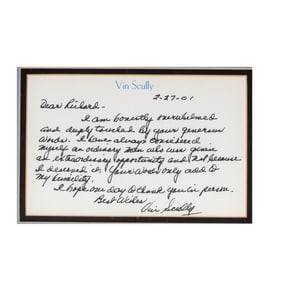 Vin Scully
2-27-01
Dear Richard-
I am honestly overwhelmed
and deeply touched by your generous
words. I have always considered
myself an ordinary man who was given
an extraordinary opportunity and not because
I deserved it. Your words only add to
my humility.
I hope one day to thank you in person.
Best Wishes
Vin Scully